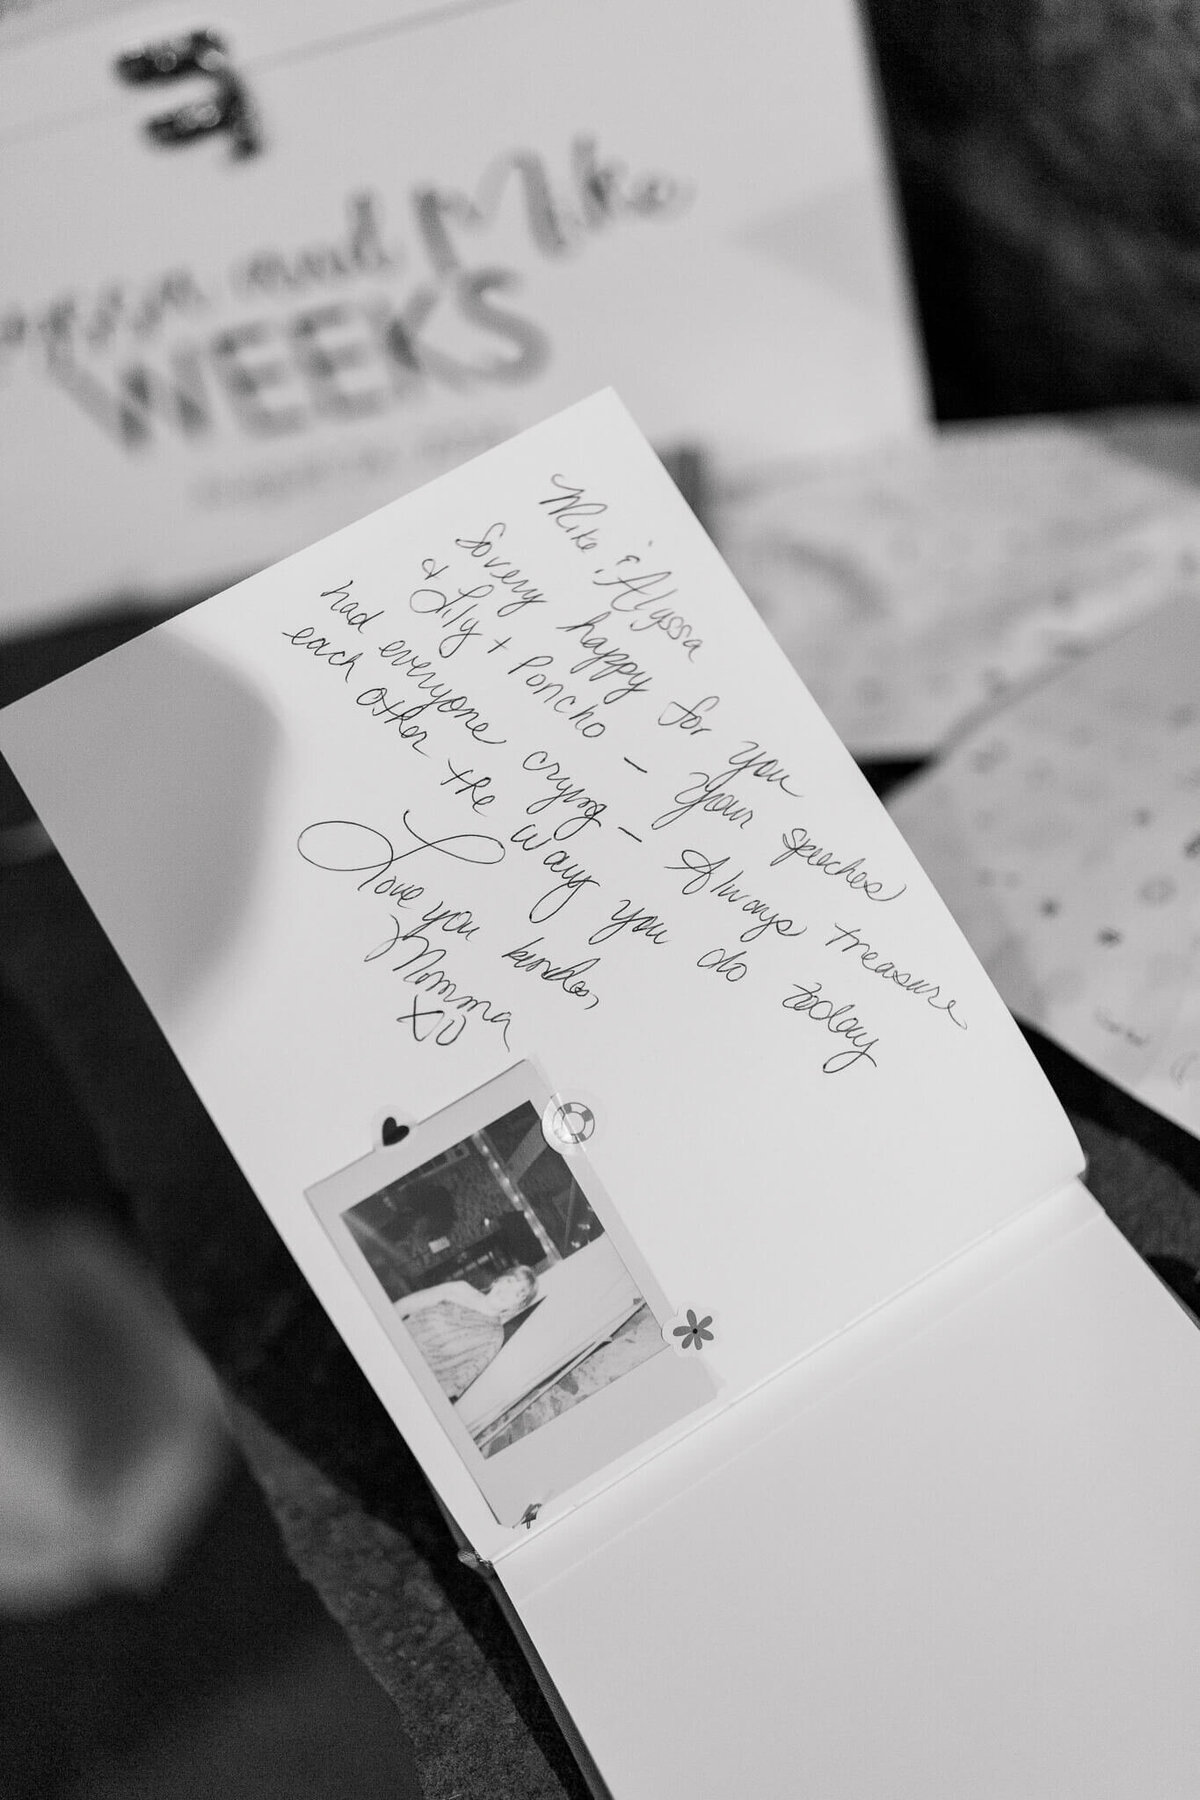 and Mike
WEEKS
Mike & Alyssa
So very happy for you
& Lily + Poncho – Your speeches
had everyone crying – Always treasure
each other the way you do today
Love you
Momma
XO